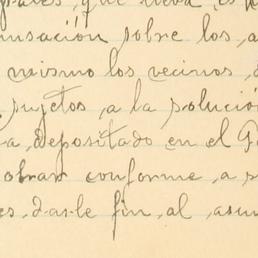 que lleva es
nsación sobre los a
mismo los vecinos,
sujetos, a la solució
a, depositado en el P
obrar conforme a s
es, darle fin, al asun